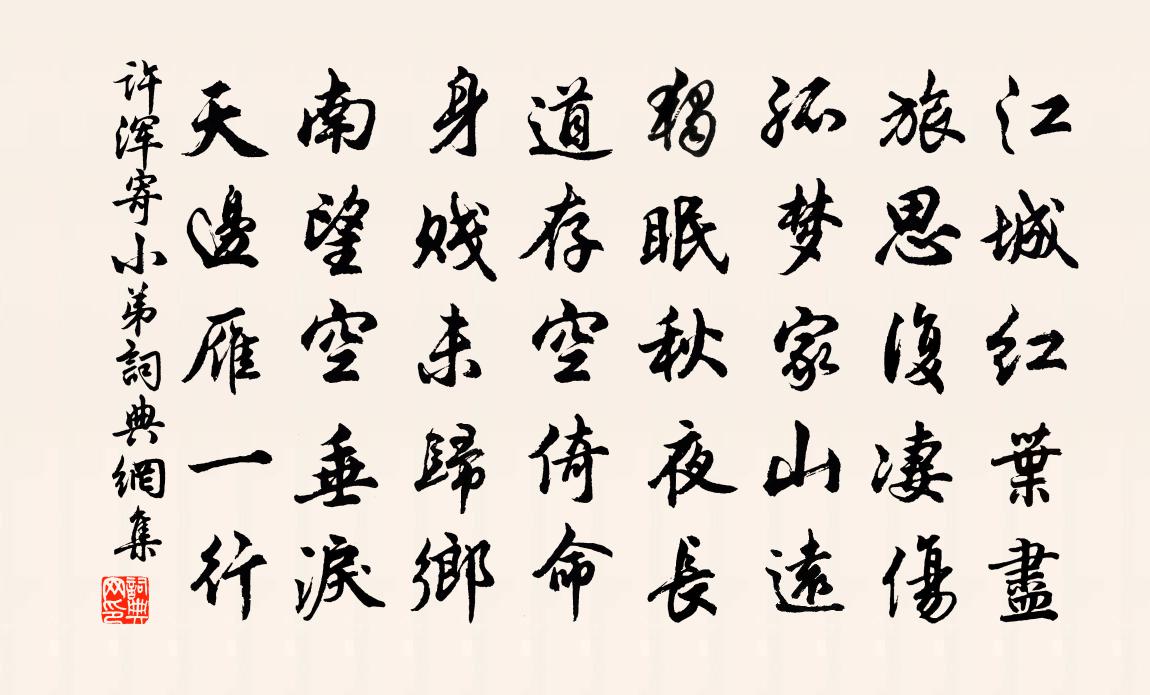 江城红葉盡
旅思復凄傷
孤梦家山遠
獨眠秋夜長
道存空倚命
身贱未歸鄉
南望空垂淚
天邊雁一行
许浑寄小弟詞典網集
詞典网印